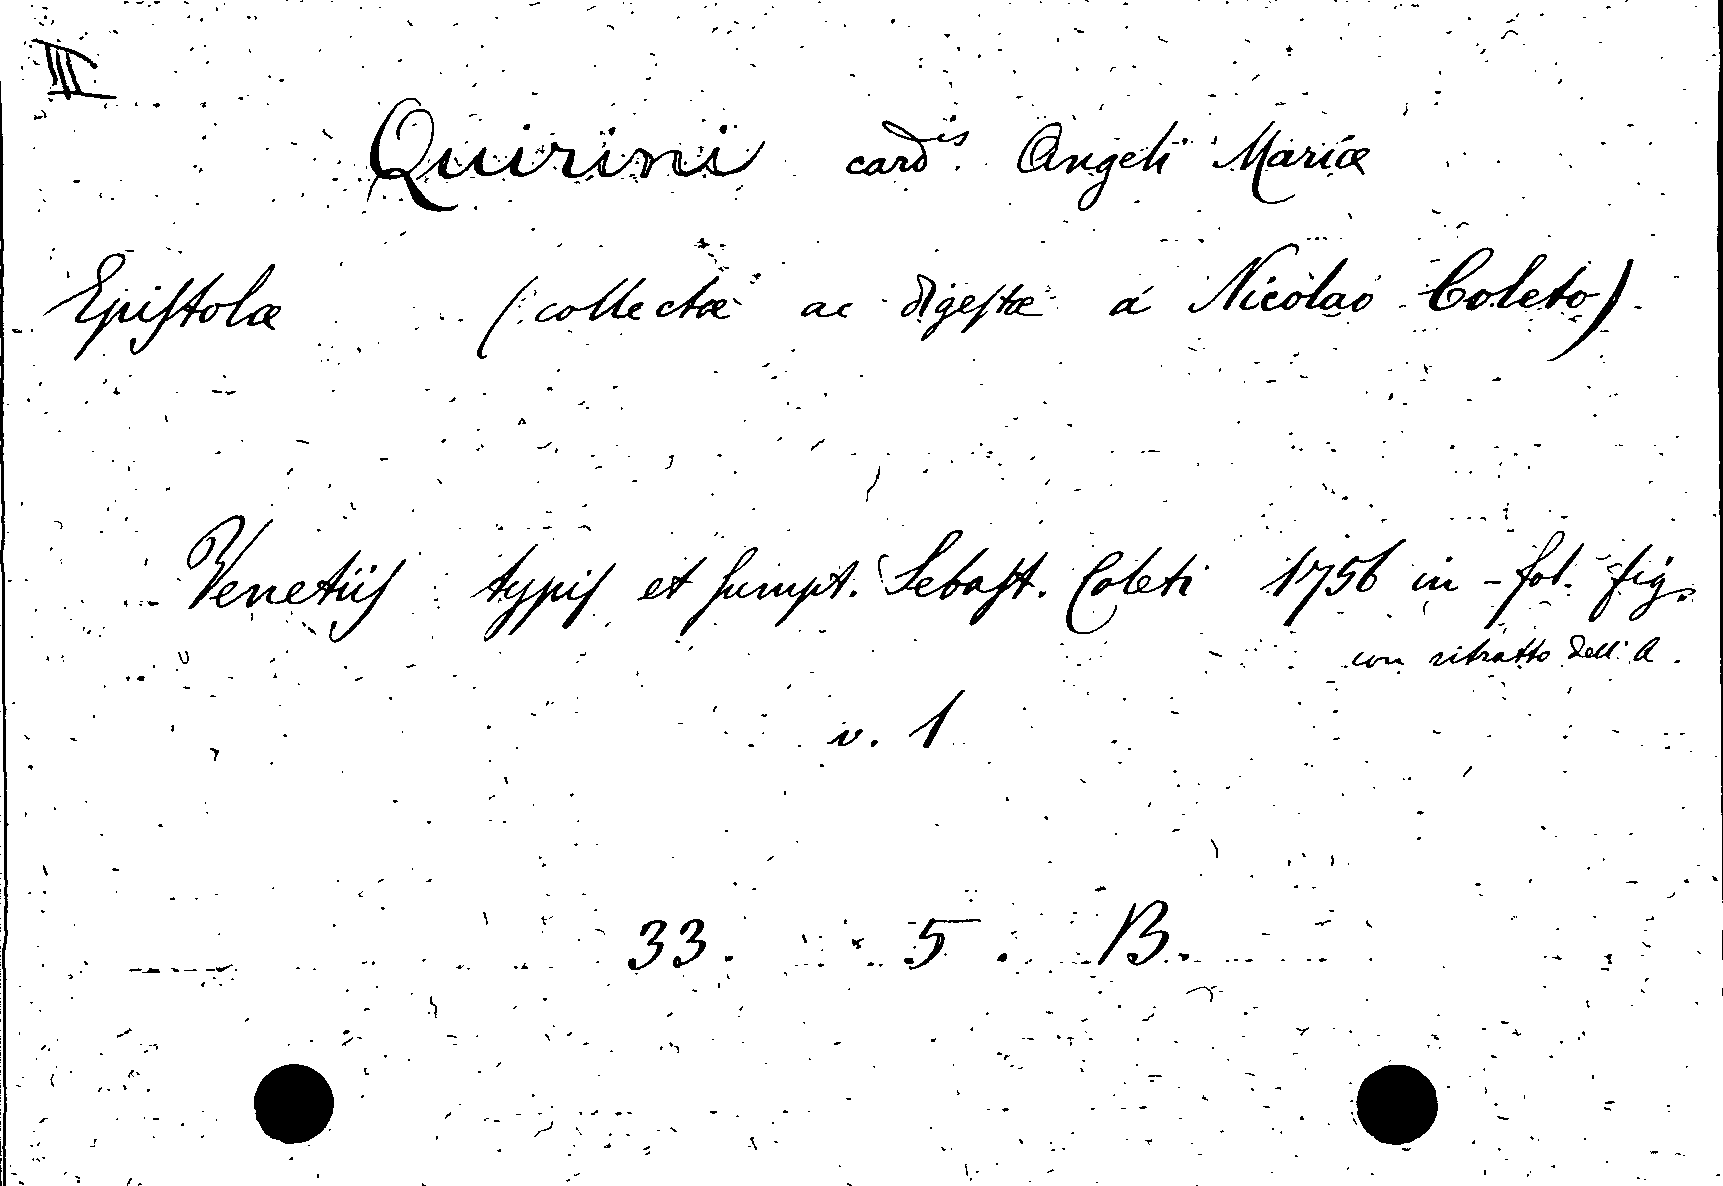 III
Quirini card.is Angeli Mariæ
Epistolæ (collectæ ac digestæ a Nicolao Coleto)
Venetiis typis et sumpt. Sebast. Coleti 1756 in-fol. fig.
con ritratto dell'A.
v. 1
33. 5. B.